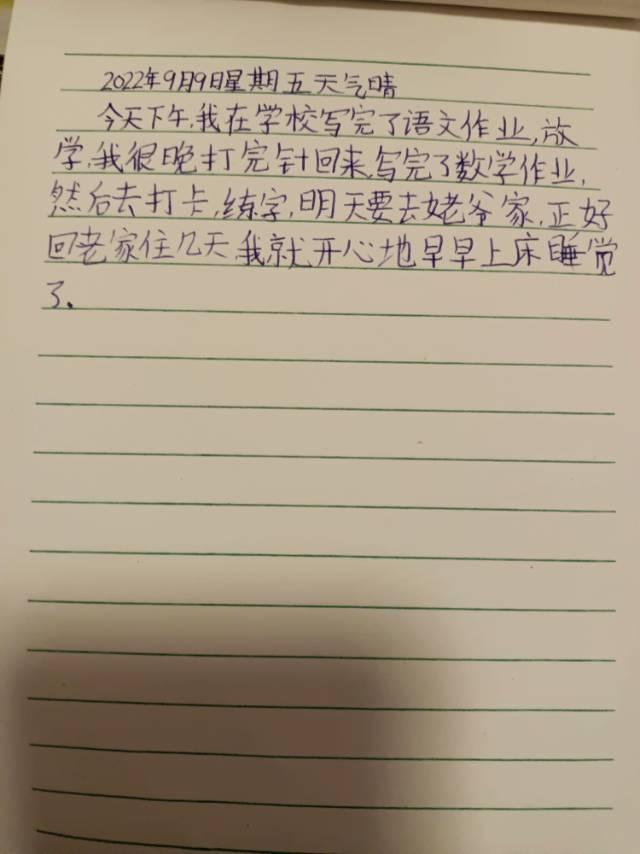 2022年9月9日星期五天气晴
今天下午,我在学校写完了语文作业,放
学,我很晚打完针回来,写完了数学作业,
然后去打卡,练字,明天要去姥爷家,正好
回老家住几天,我就开心地早早上床睡觉
了。